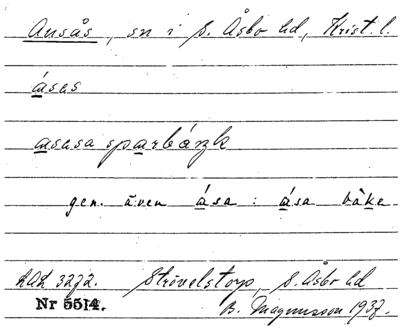 Ausås, sn i S. Åsbo hd, Krist. l.
a̲sas
a̲sasa spa̲rbánk
gen. även á̲sa : á̲sa bàka
LAL 3272. Strövelstorp, S. Åsbo hd
Nr 5514. B. Magnusson 1937.